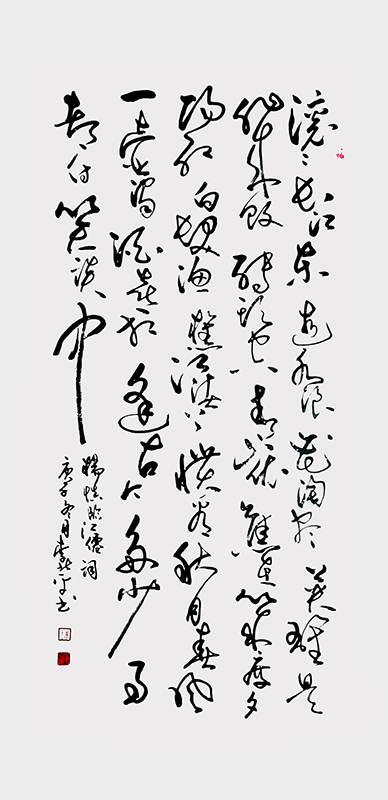 滚滚长江东逝水浪花淘尽英雄是
非成败转头空青山依旧在几度夕
阳红白发渔樵江渚上惯看秋月春风
一壶浊酒喜相逢古今多少事
都付笑谈中
杨慎临江仙词
庚子冬月书